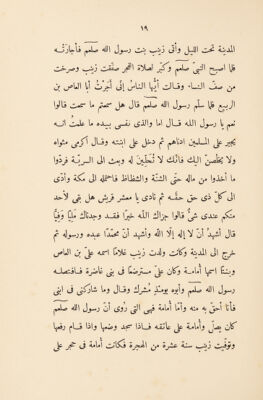 ١٩
المدينة تحت الليل وأتى زينب بنت رسول الله صلعم فأجارته
فلما اصبح النبيّ صلعم وكبّر لصلاة الفجر صفّقت زينب وصرخت
من صفّ النسا، وقالت أيّها الناسُ إنى أجرْتُ أبا العاص بن
الربيع فلما سلّم رسول الله صلعم قال هل سمعتم ما سمعت قالوا
نعم يا رسول الله قال اما والذى نفسى بيده ما علمتُ انه
يجير على المسلمين ادناهم ثم دخل على ابنته وقال أكرمى مثواه
ولا يخلصنّ اليك فانّك لا تحلّين له وبعث الى السريّة فردّوا
ما اخذوا من ماله حتّى الشنّة والشظاظ فاحتمله الى مكة وأدّى
الى كلّ ذى حقّ حقّه ثم نادى يا معشر قريش هل بقى لأحد
منكم عندى شىء قالوا جزاك اللّه خيرًا فقد وجدناك مليّا وفيًّا
قال أشهدُ أنْ لا إله إلّا اللّه وأشهد أنّ محمّدًا عبده ورسوله ثم
خرج الى المدينة وكانت ولدت زينب غلامًا اسمه علىّ بن العاص
وبنتًا اسمها أمامة وكان علىّ مسترضعًا فى بنى غاضرة فافتصله
رسول الله صلعم وأبوه يومئذ مُشرك وقال وما شاركنى فى ابنى
فأنا أحقّ به منه وأمّا أمامة فهى التى رُوى أنّ رسول الله صلعم
كان يصلّى وأمامة على عاتقه فاذا سجد وضعها واذا قام رفعها
وتوفّيت زينب سنة عشرة من الهجرة فكانت أمامة فى حجر على